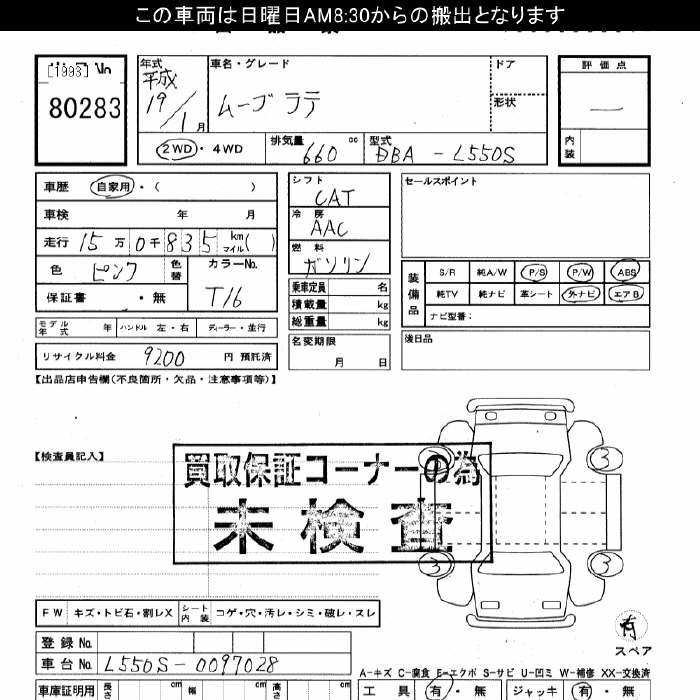 この車両は日曜日AM8:30からの搬出となります
[1993]
80283
年式
平成
19/1月
車名・グレード
ムーヴ ラテ
ドア
形状
評価点
内装
2WD・4WD
排気量
660 cc
型式
DBA-L550S
車歴 自家用・( )
車検 年 月
走行 15万0千835 km マイル( )
色 ピンク 色替
カラーNo.
T16
保証書 ・無
モデル年式 年 ハンドル 左・右 ディーラー・並行
リサイクル料金 9200 円 預託済
シフト
CAT
冷房
AAC
燃料
ガソリン
乗車定員 名
積載量 kg
総重量 kg
名変期限
月 日
セールスポイント
装備品
S/R 純A/W P/S P/W ABS
純TV 純ナビ 革シート 外ナビ エアB
ナビ型番:
後日品
【出品店申告欄(不良箇所・欠品・注意事項等)】
【検査員記入】
買取保証コーナーの為
未検査
3 3
3 3
有
スペア
FW キズ・トビ石・割レX シート内装 コゲ・穴・汚レ・シミ・破レ・スレ
登録No.
車台No. L550S-0097028
A-キズ C-腐食 E-エクボ S-サビ U-凹ミ W-補修 XX-交換済
車庫証明用 長さ cm 幅 cm 高さ cm
工具 有・無 ジャッキ 有・無